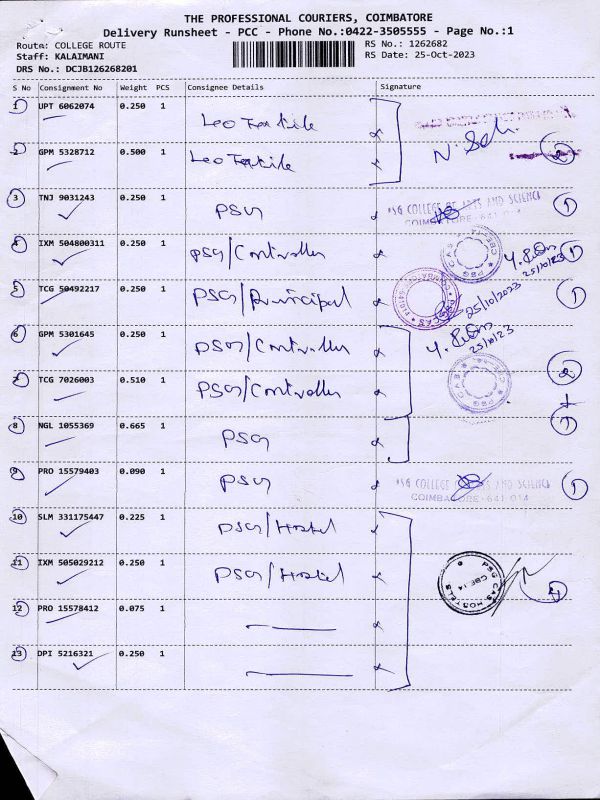 THE PROFESSIONAL COURIERS, COIMBATORE
Delivery Runsheet - PCC - Phone No.:0422-3505555 - Page No.:1
Route: COLLEGE ROUTE RS No.: 1262682
Staff: KALAIMANI RS Date: 25-Oct-2023
DRS No.: DCJB126268201
S No Consignment No Weight PCS Consignee Details Signature
1 UPT 6062074 0.250 1 Leo Textile
N. Sel.
2 GPM 5328712 0.500 1 Leo Textile 2
3 TNJ 9031243 0.250 1 PSG PSG COLLEGE OF ARTS AND SCIENCE 1
COIMBATORE-641 014
4 IXM 504800311 0.250 1 PSG/Controller PSG CAS CBE-14 25/10/23 1
5 TCG 50492217 0.250 1 PSG/Principal PSGCAS 25/10/2023 1
6 GPM 5301645 0.250 1 PSG/Controller 25/10/23
7 TCG 7026003 0.510 1 PSG/Controller PSG CAS CBE-14 2
+
8 NGL 1055369 0.665 1 PSG 1
9 PRO 15579403 0.090 1 PSG PSG COLLEGE OF ARTS AND SCIENCE 1
COIMBATORE-641 014
10 SLM 331175447 0.225 1 PSG/Hostel
11 IXM 505029212 0.250 1 PSG/Hostel PSG CAS HOSTELS CBE-14 4
12 PRO 15578412 0.075 1
13 DPI 5216321 0.250 1